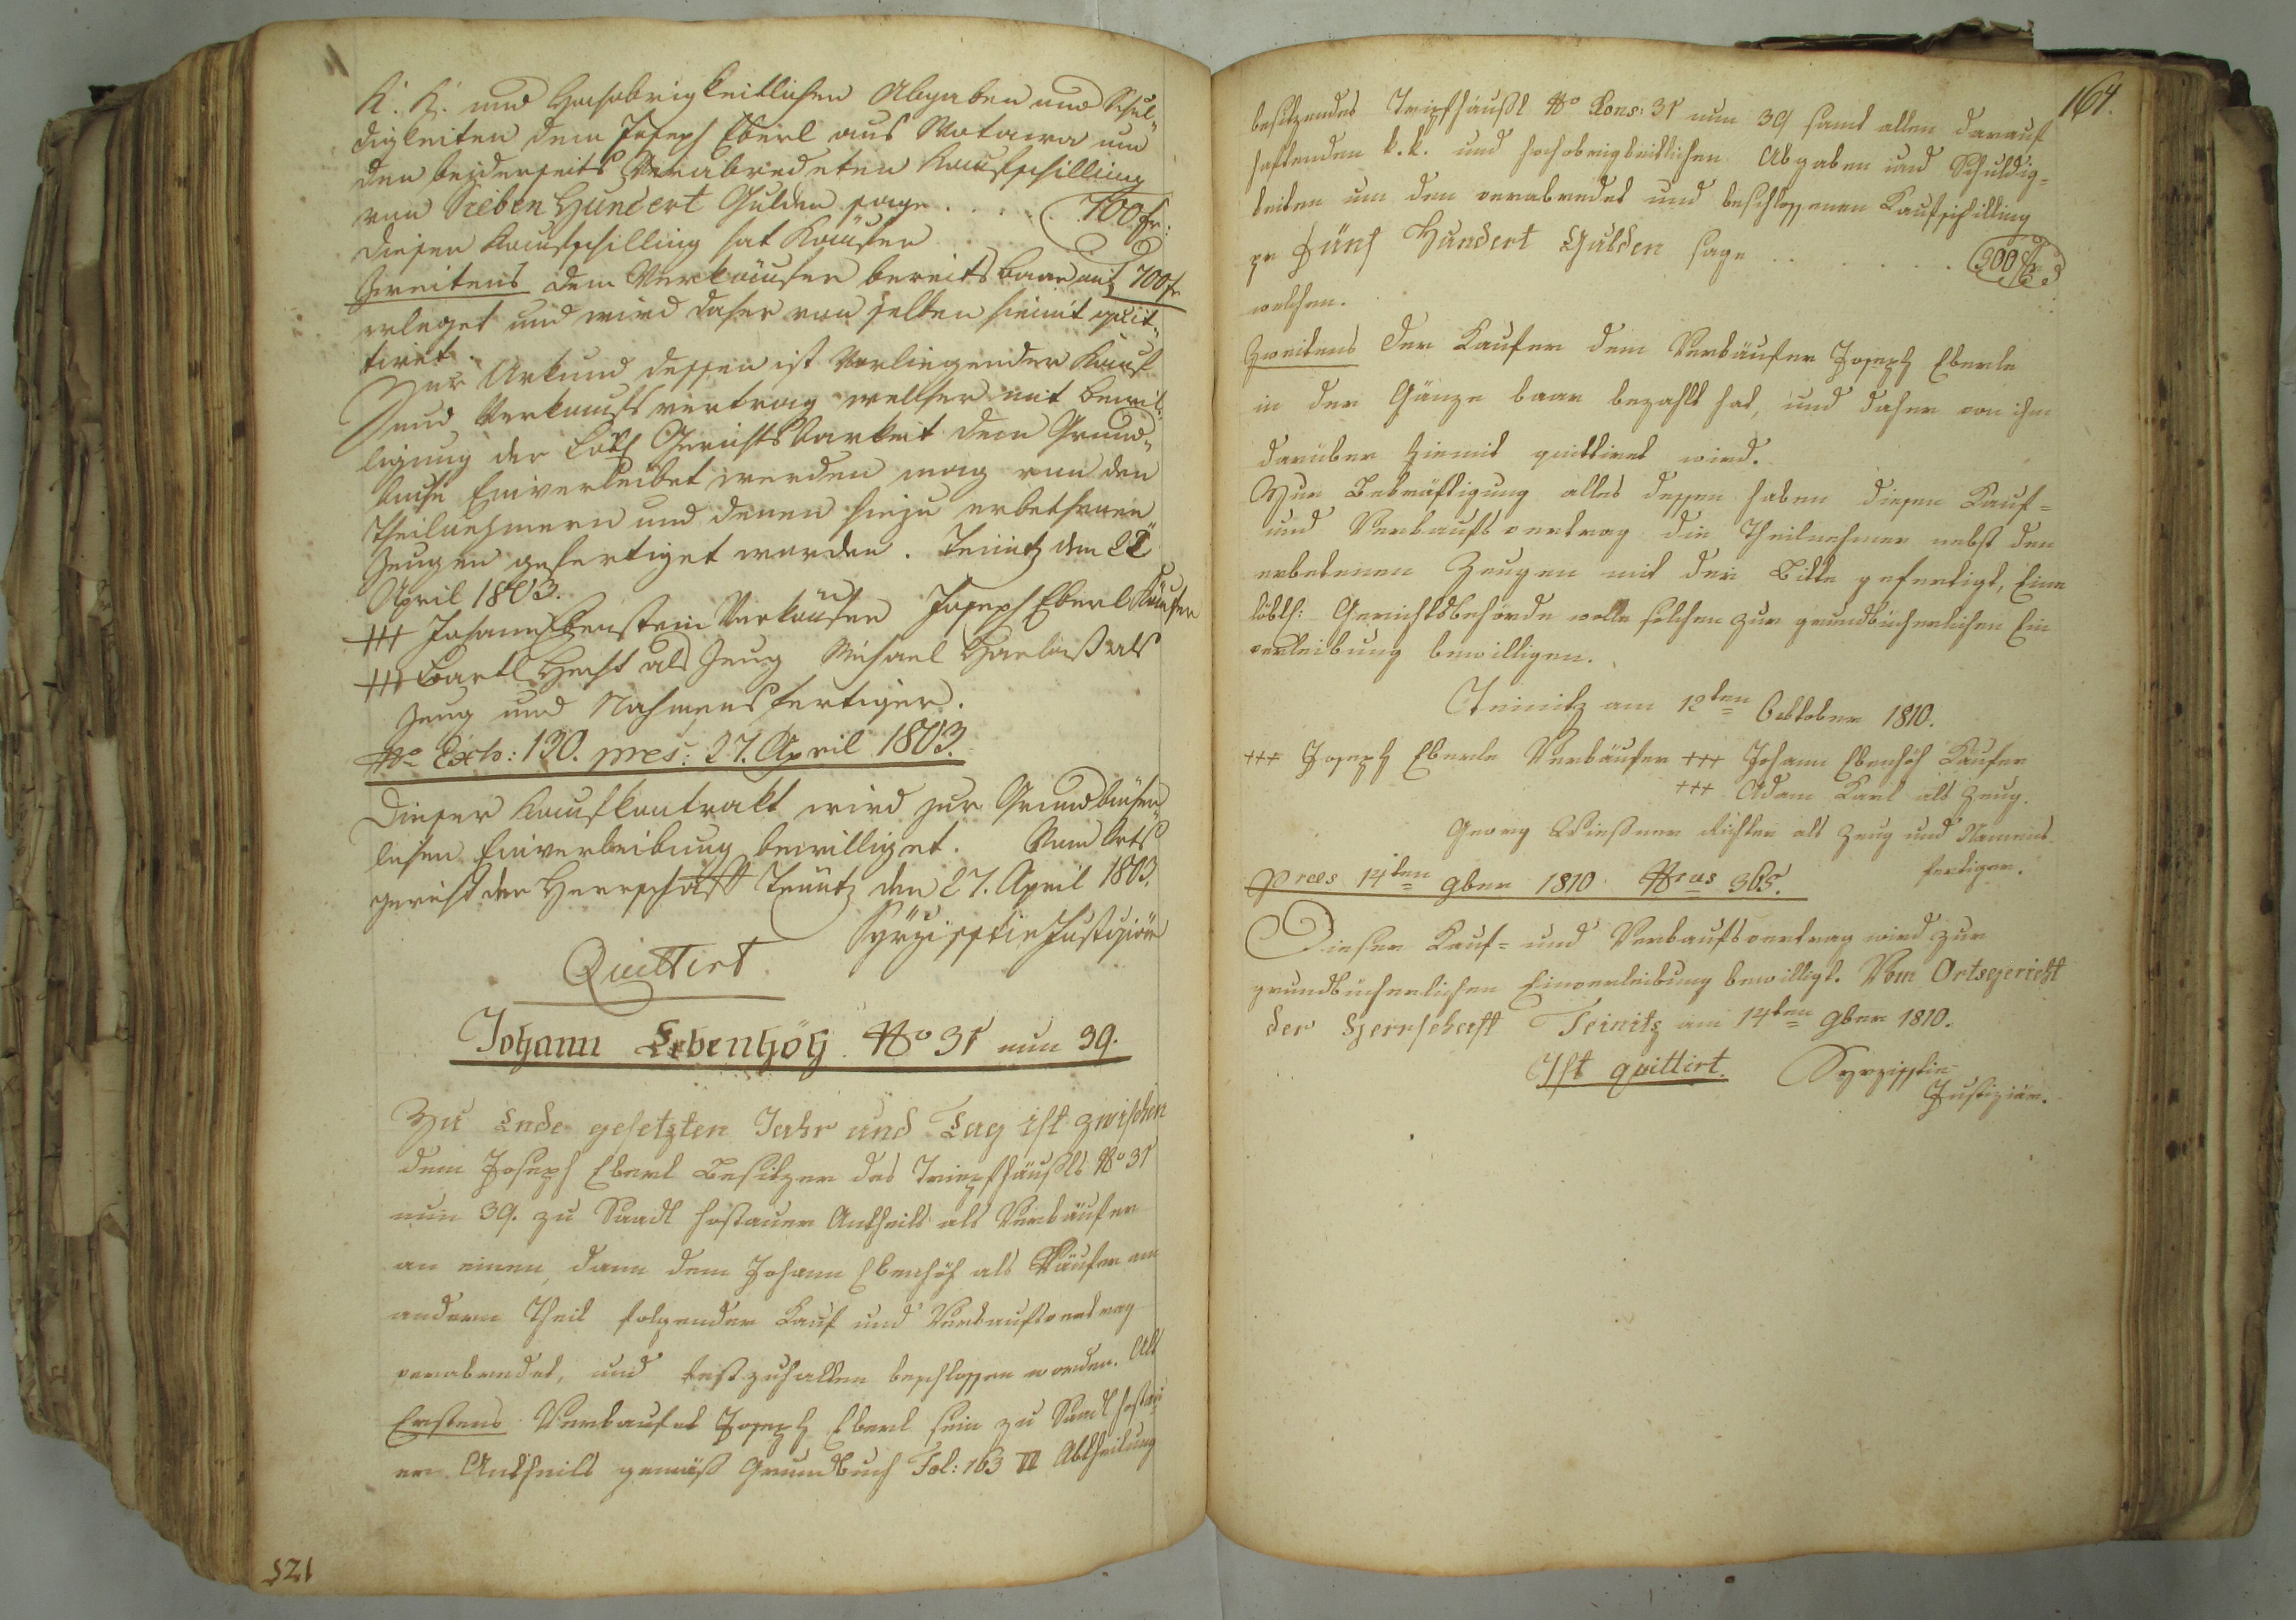 K. K. und Hochobrigkeitlichen Abgaben und Schul„
digkeiten dem Joseph Eberl aus Wotawa um
den beiderseits Verabredeten Kaufschilling
von Sieben Hundert Gulden sage . . . . . 700 fr:
diesen Kaufschilling hat Käufer
Zweitens dem Verkäufer bereits baar mit 700 fr
erleget und wird daher von selben hiemit quit„
tiret.
Zur Urkund dessen ist Vorliegender Kauf
und Verkaufsvertrag welcher mit bewil„
ligung der Löbl Gerichtsbarkeit dem Grund„
buche Einverleibet werden mag von den
Theilnehmern und denen hiezu erbethenen
Zeugen gefertiget worden. Teinitz den
April 1803.
+++ Johann Verkäufer Joseph Eberl Käufer
+++ Bartl Hecht als Zeug Michael als
Zeug und Nahmensfertiger.
No Exh: 130. pres: 27. April 1803.
Dieser Kaufkontrakt wird zur Grundbücher„
lichen Einverleibung bewilliget. Vom Orts
gericht der Herrschaft Teinitz den 27. April 1803.
Justiziär
Quittirt
Johann Ebenhöh No 31 nun 39.
Zu Ende gesetzten Jahr und Tag ist zwischen
dem Joseph Eberl Besitzer des Tripfhäußls No 31
nun 39. zu hostauer Antheils als Verkäufer
an einem, dann dem Johann Ebenhöh als Käufer am
andern Theil folgender Kauf und Verkaufsvertrag
verabredet, und festzuhalten beschlossen worden. Als
Erstens Verkaufet Joseph Eberl sein zu hostau
er Antheils gemäß Grundbuch Fol: 163 VI Abtheilung
521
164.
besitzendes Tripfhäußl No Kons: 31 nun 39 samt allen darauf
haftenden k. k. und hochobrigkeitlichen Abgaben und Schuldig=
keiten um den verabredet und beschlossenen Kaufschilling
pr Fünf Hundert Gulden sage . . . . . . . 500 fr
welchen.
Zweitens Der Kaufer dem Verkäufer Joseph Eberle
in der Gänze baar bezahlt hat, und daher von ihm
darüber hiemit quittiret wird.
Zur Bekräftigung alles dessen haben diesen Kauf=
und Verkaufsvertrag die Theilnehmer nebst den
erbetenen Zeugen mit der Bitte gefertigt, Eine
löbl: Gerichtsbehörde wolle solchen zur grundbücherlichen Ein
verleibung bewilligen.
Teinitz am 12ten Oktober 1810.
+++ Joseph Eberle Verkäufer +++ Johann Ebenhöh Käufer
+++ Adam Karl als Zeug.
Georg Wießner Richter als Zeug und Namens
fertiger.
Praes 14ten 9ber 1810 Nrus 365.
Dieser Kauf= und Verkaufsvertrag wird zur
grundbücherlichen Einverleibung bewilligt. Vom Ortsgericht
der Herrschaft Teinitz am 14ten 9ber 1810.
Ist quittirt.
Justiziär.